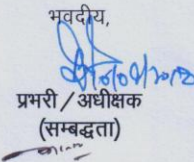 भवदीय,
प्रभरी / अधीक्षक
(सम्बद्धता)